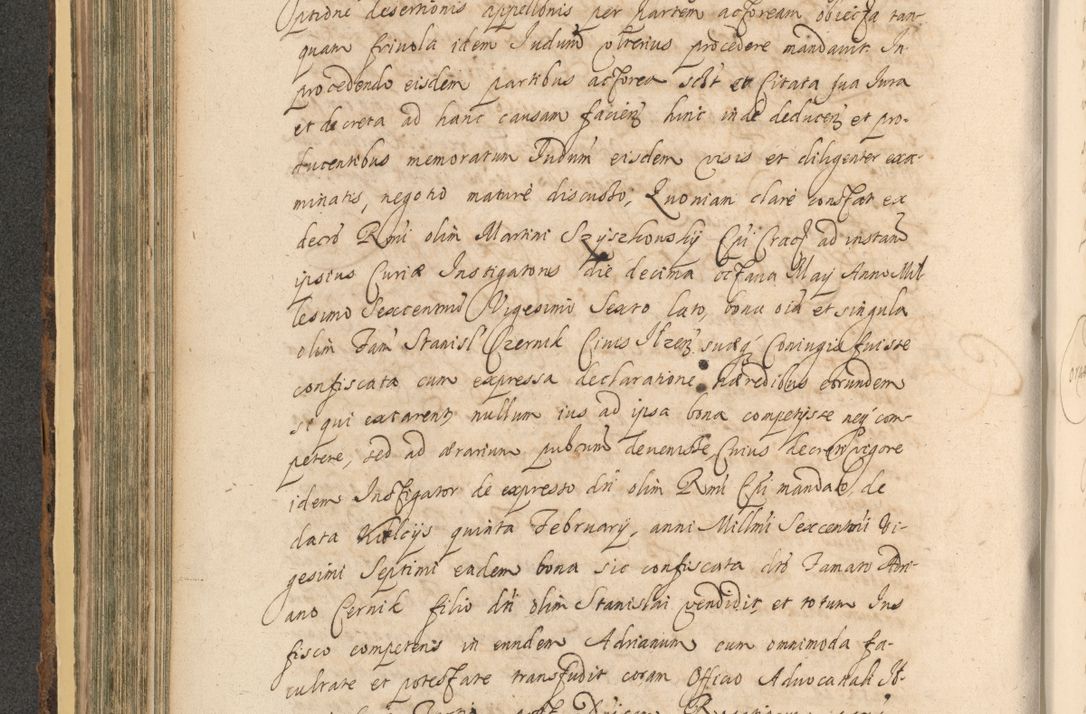 ptione desertionis appellonis per partem actoream obiecta tan-
quam friuola idem Judum vlterius procedere mandauit. In
procedendo eisdem partibus actorea scbt et Citata sua Jura
et decreta ad hanc causam facien hinc inde deducen et pro-
ducentibus memoratum Judum eisdem visis et diligenter exa-
minatis, negotio mature discusso, Quoniam clare constat ex
decro Rmi olim Martini Szyszkowsky Epi Crac ad instan
ipsius Curiæ Instigatoris die decima octaua May Anno Mil
lesimo Sexcentmo Vigesimo Sexto lato, bona oia et singula
olim Fam Stanisl Czernik Ciuis Ilzen suæq Coniugis fuisse
confiscata cum expressa declaratione hæredibus eorundem
si qui extarent nullum ius ad ipsa bona competijsse neq com-
petere, sed ad ærarium pubcum deuenisse Cuius decreti vigore
idem Instigator de expresso dti olim Rmi Epi mandato, de
data Kielcijs quinta February, anni Millmi Sexcentmi Vi-
gesimi Septimi eadem bona sic confiscata dto Famato Adri-
ano Cernik filio dti olim Stanislai vendidit et totum Ius
fisco competens in eundem Adrianum cum omnimoda fa-
cultate et potestate transfudit coram Officio Aduocatiali Il-